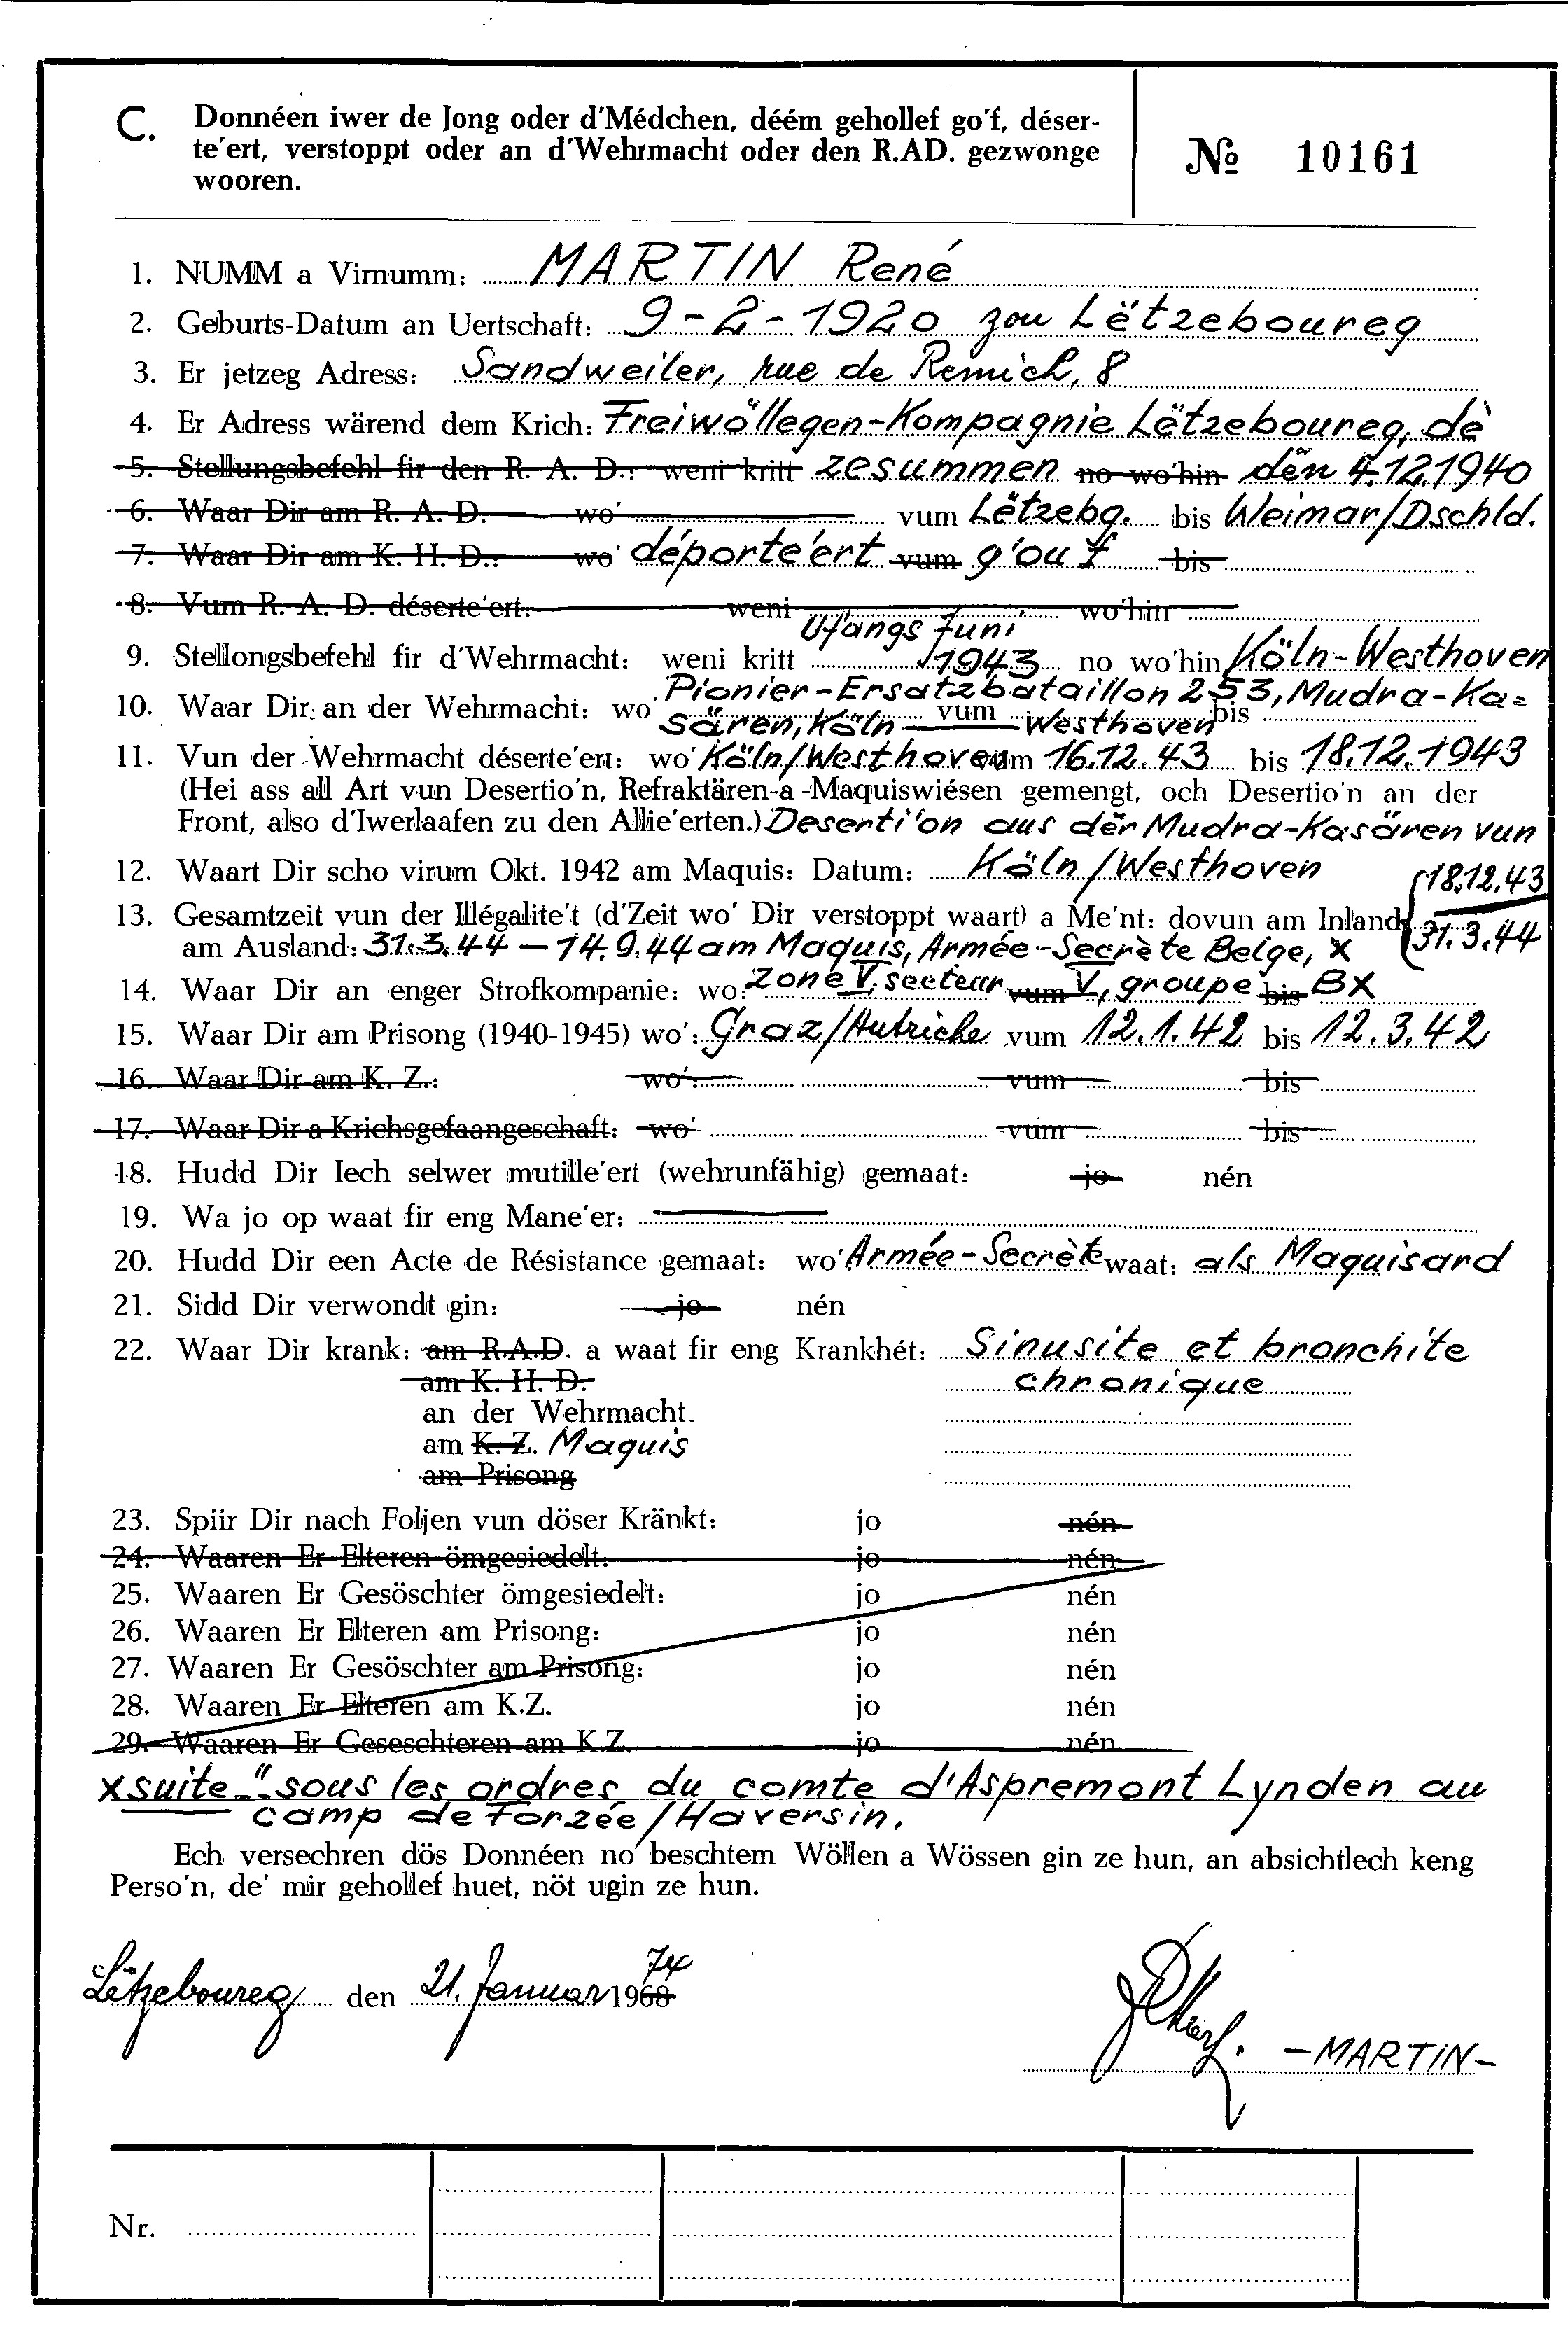 C. Donnéen iwer de Jong oder d'Médchen, déém gehollef go'f, déser-
te'ert, verstoppt oder an d'Wehrmacht oder den R.AD. gezwonge
wooren.
№ 10161
1. NUMM a Virnumm: MARTIN René
2. Geburts-Datum an Uertschaft: 9-2-1920 zou Lëtzeboureg
3. Er jetzeg Adress: Sandweiler, rue de Remich, 8
4. Er Adress wärend dem Krich: Freiwöllegen-Kompagnie Lëtzeboureg, dè
5. Stellungsbefehl fir den R. A. D.: weni kritt zesummen no wo'hin den 4.12.1940
6. Waar Dir am R. A. D. wo' vum Lëtzebg. bis Weimar/Dschld.
7. Waar Dir am K. H. D.: wo' déporte'ert vum g'ouf bis
8. Vum R. A. D. déserte'ert: weni wo'hin
Ufangs Juni
9. Stellongsbefehl fir d'Wehrmacht: weni kritt 1943 no wo'hin Köln-Westhoven
Pionier-Ersatzbataillon 253, Mudra-Ka=
10. Waar Dir an der Wehrmacht: wo' sären, Köln vum Westhoven bis
11. Vun der Wehrmacht déserte'ert: wo' Köln/Westhoven vum 16.12.43 bis 18.12.1943
(Hei ass all Art vun Desertio'n, Refraktären-a-Maquiswiésen gemengt, och Desertio'n an der
Front, also d'Iwerlaafen zu den Allie'erten.) Deserti'on aus der Mudra-Kasären vun
12. Waart Dir scho virum Okt. 1942 am Maquis: Datum: Köln/Westhoven
18.12.43
13. Gesamtzeit vun der Illégalite't (d'Zeit wo' Dir verstoppt waart) a Me'nt: dovun am Inland
31.3.44
am Ausland: 31.3.44 — 14.9.44 am Maquis, Armée-Secrète Belge, x
14. Waar Dir an enger Strofkompanie: wo: zone V, secteur vum V, groupe bis BX
15. Waar Dir am Prisong (1940-1945) wo': Graz/Autriche vum 12.1.42 bis 12.3.42
16. Waar Dir am K. Z.: wo': vum bis
17. Waar Dir a Krichsgefaangeschaft: wo' vum bis
18. Hudd Dir Iech selwer mutille'ert (wehrunfähig) gemaat: jo nén
19. Wa jo op waat fir eng Mane'er:
20. Hudd Dir een Acte de Résistance gemaat: wo' Armée-Secrète waat: als Maquisard
21. Sidd Dir verwondt gin: jo nén
22. Waar Dir krank: am R.A.D. a waat fir eng Krankhét: Sinusite et bronchite
am K. H. D. chronique
an der Wehrmacht.
am K. Z. Maquis
am Prisong
23. Spiir Dir nach Foljen vun döser Kränkt: jo nén
24. Waaren Er Elteren ömgesiedelt: jo nén
25. Waaren Er Gesöschter ömgesiedelt: jo nén
26. Waaren Er Elteren am Prisong: jo nén
27. Waaren Er Gesöschter am Prisong: jo nén
28. Waaren Er Elteren am K.Z. jo nén
29. Waaren Er Geseschteren am K.Z. jo nén
x suite-" sous les ordres du comte d'Aspremont Lynden au
camp de Forzée/Haversin.
Ech versechren dös Donnéen no' beschtem Wöllen a Wössen gin ze hun, an absichtlech keng
Perso'n, de' mir gehollef huet, nöt ugin ze hun.
74
Lëtzeboureg den 21. Januar 1968
-MARTIN-
Nr.